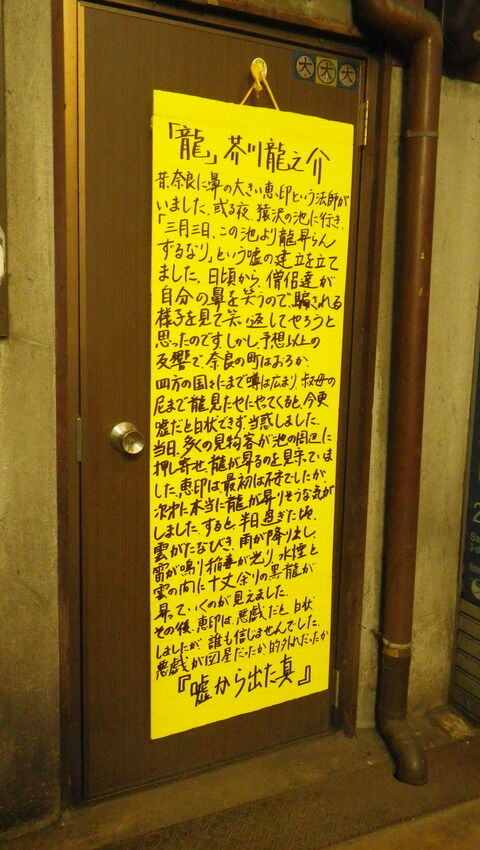 大 大 大
「龍」芥川龍之介
昔、奈良に鼻の大きい恵印という法師が
いました。或る夜、猿沢の池に行き、
「三月三日、この池より龍昇らん
ずるなり」という嘘の建立を立て
ました。日頃から、僧侶達が
自分の鼻を笑うので、騙される
様子を見て笑い返してやろうと
思ったのです。しかし、予想以上の
反響で、奈良の町はおろか、
四方の国々にまで噂は広まり、叔母の
尼まで龍見たせにやってくると、今更
嘘だと白状できず、当惑しました。
当日、多くの見物客が池の周辺に
押し寄せ、龍が昇るのを見守っていま
した。恵印は、最初は不安でしたが、
次第に本当に龍が昇りそうな気が
しました。すると、半日過ぎた頃、
雲がたなびき、雨が降りまし
雷が鳴り稲妻が光り、水煙と
雲の間に十丈余りの黒龍が
昇っていくのが見えました。
その後、恵印は、悪戯だと白状
しましたが、誰も信じませんでした。
悪戯が図星だったか、的外れだったか
『嘘から出た真』